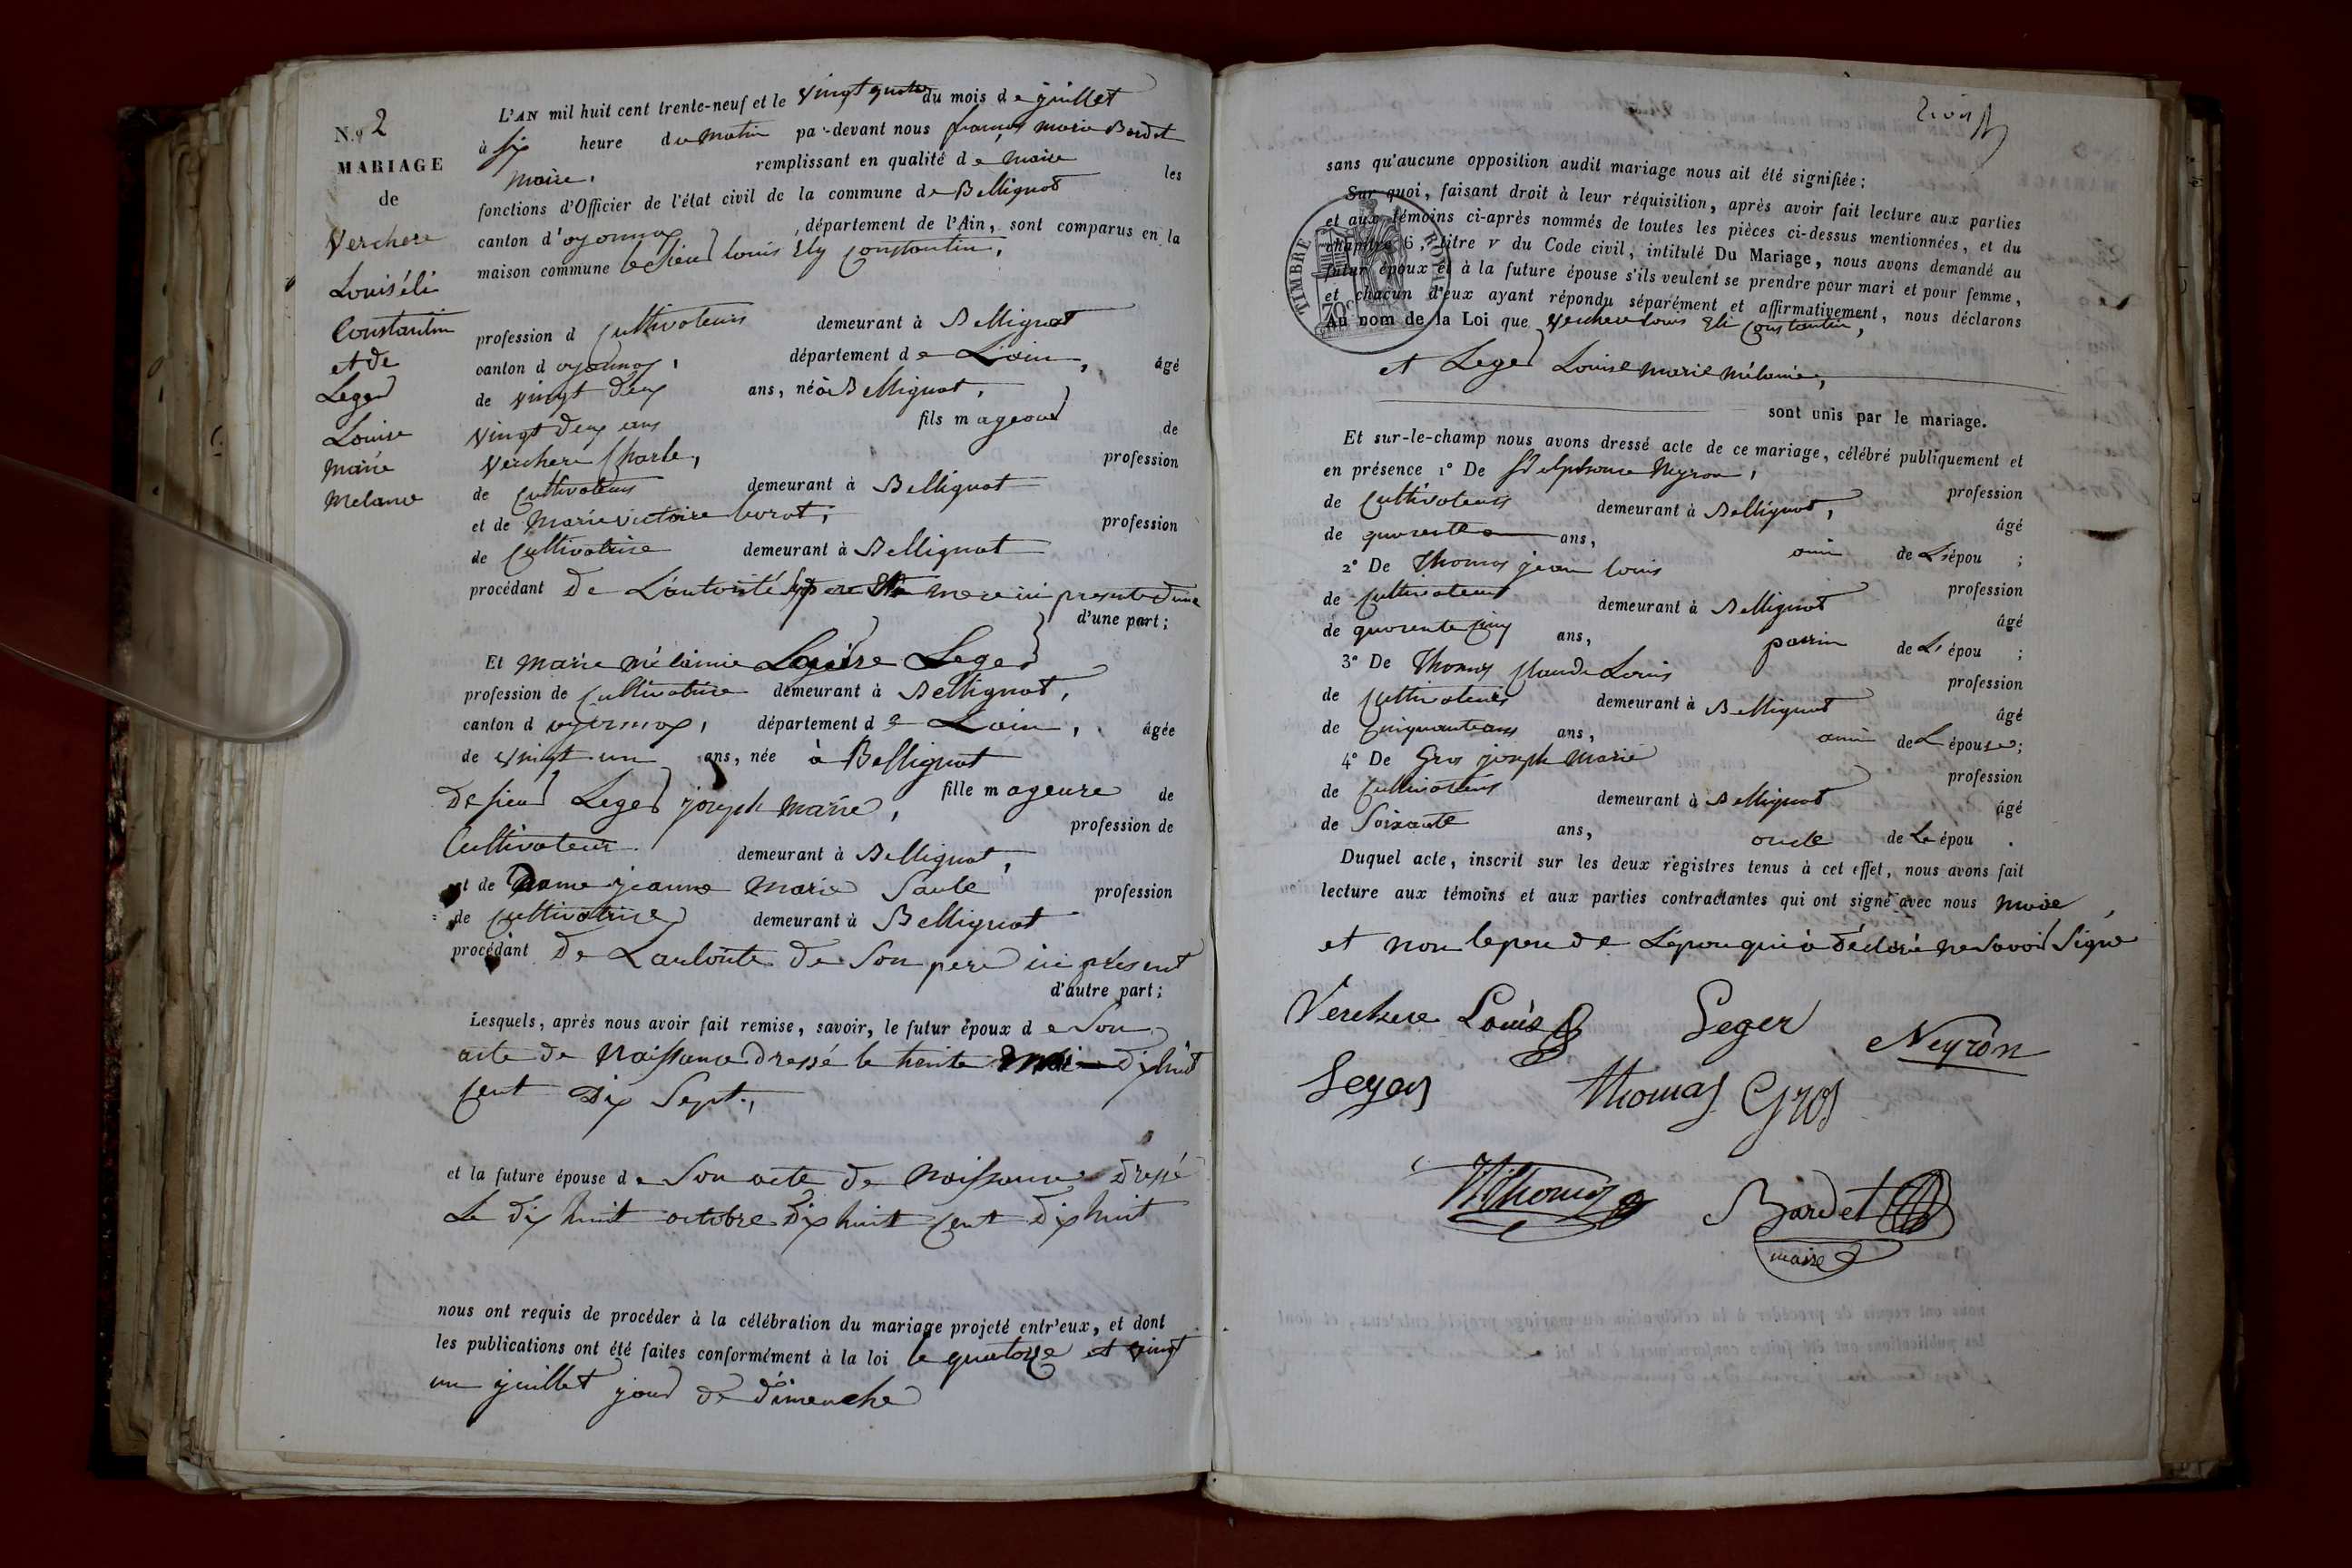 N.º 2
MARIAGE
de
Verchere
Louis éli
Constantin
et de
Leger
Louise
marie
melanie
L'AN mil huit cent trente-neuf et le vingt quatre du mois de juillet
à six heure du matin par-devant nous françois marie Bardet
maire, remplissant en qualité de maire les
fonctions d'Officier de l'état civil de la commune de Bellignat
canton d'oyonnax, département de l'Ain, sont comparus en la
maison commune le sieur louis Ely constantin,
profession d cultivateur demeurant à Bellignat
canton d oyonnax, département de L'ain, âgé
de vingt deux ans, né à Bellignat,
vingt deux ans fils mageour de
verchere Charle, profession
de cultivateur demeurant à Bellignat
et de marie victoire profession
de cultivatrice demeurant à Bellignat
procédant de L'autorité père mere ici present d'une
d'une part;
Et marie mélanie Leger
profession de cultivatrice demeurant à Bellignat,
canton d oyonnax, département de Lain, âgée
de vingt un ans, née à Bellignat
De sieur Leger joseph marie, fille mageure de
profession de
Cultivateur demeurant à Bellignat,
et de Dame jeanne marie profession
de cultivatrice demeurant à Bellignat
procédant de Lautorite de Son pere ici présent
d'autre part;
Lesquels, après nous avoir fait remise, savoir, le futur époux de Son
acte de Naissance dressé le trente mai dix huit
cent Dix Sept,
et la future épouse de Son acte de naissance dressé
Le dix huit octobre Dix huit cent dix huit
nous ont requis de procéder à la célébration du mariage projeté entr'eux, et dont
les publications ont été faites conformément à la loi le quatorze et vingt
un juillet jour de dimenche
sans qu'aucune opposition audit mariage nous ait été signifiée:
Sur quoi, faisant droit à leur réquisition, après avoir fait lecture aux parties
et aux témoins ci-après nommés de toutes les pièces ci-dessus mentionnées, et du
chapitre 6, titre v du Code civil, intitulé Du Mariage, nous avons demandé au
futur époux et à la future épouse s'ils veulent se prendre pour mari et pour femme,
et chacun d'eux ayant répondu séparément et affirmativement, nous déclarons
Au nom de la Loi que verchere louis Eli constantin,
et Leger Louise marie mélanie,
sont unis par le mariage.
TIMBRE ROYAL
70c
Et sur-le-champ nous avons dressé acte de ce mariage, célébré publiquement et
en présence 1° De Neyron,
profession
de cultivateur demeurant à Bellignat, âgé
de quarente ans, ami de L'épou ;
2° De Thomas jean louis
profession
de cultivateur demeurant à Bellignat âgé
de quarente cinq ans, parrin de L'épou ;
3° De Thomas claude Louis
profession
de cultivateur demeurant à Bellignat âgé
de cinquante ans ans, ami de L épouse;
4° De Gros joseph marie
profession
de cultivateur demeurant à Bellignat âgé
de Soixante ans, oncle de La épou .
Duquel acte, inscrit sur les deux registres tenus à cet effet, nous avons fait
lecture aux témoins et aux parties contractantes qui ont signé avec nous maire
et non le pere de Lépou qui à déclaré ne Savoir Signe
Verchere Louis Leger Neyron
Leger Thomas Gros
Thomas Bardet
maire